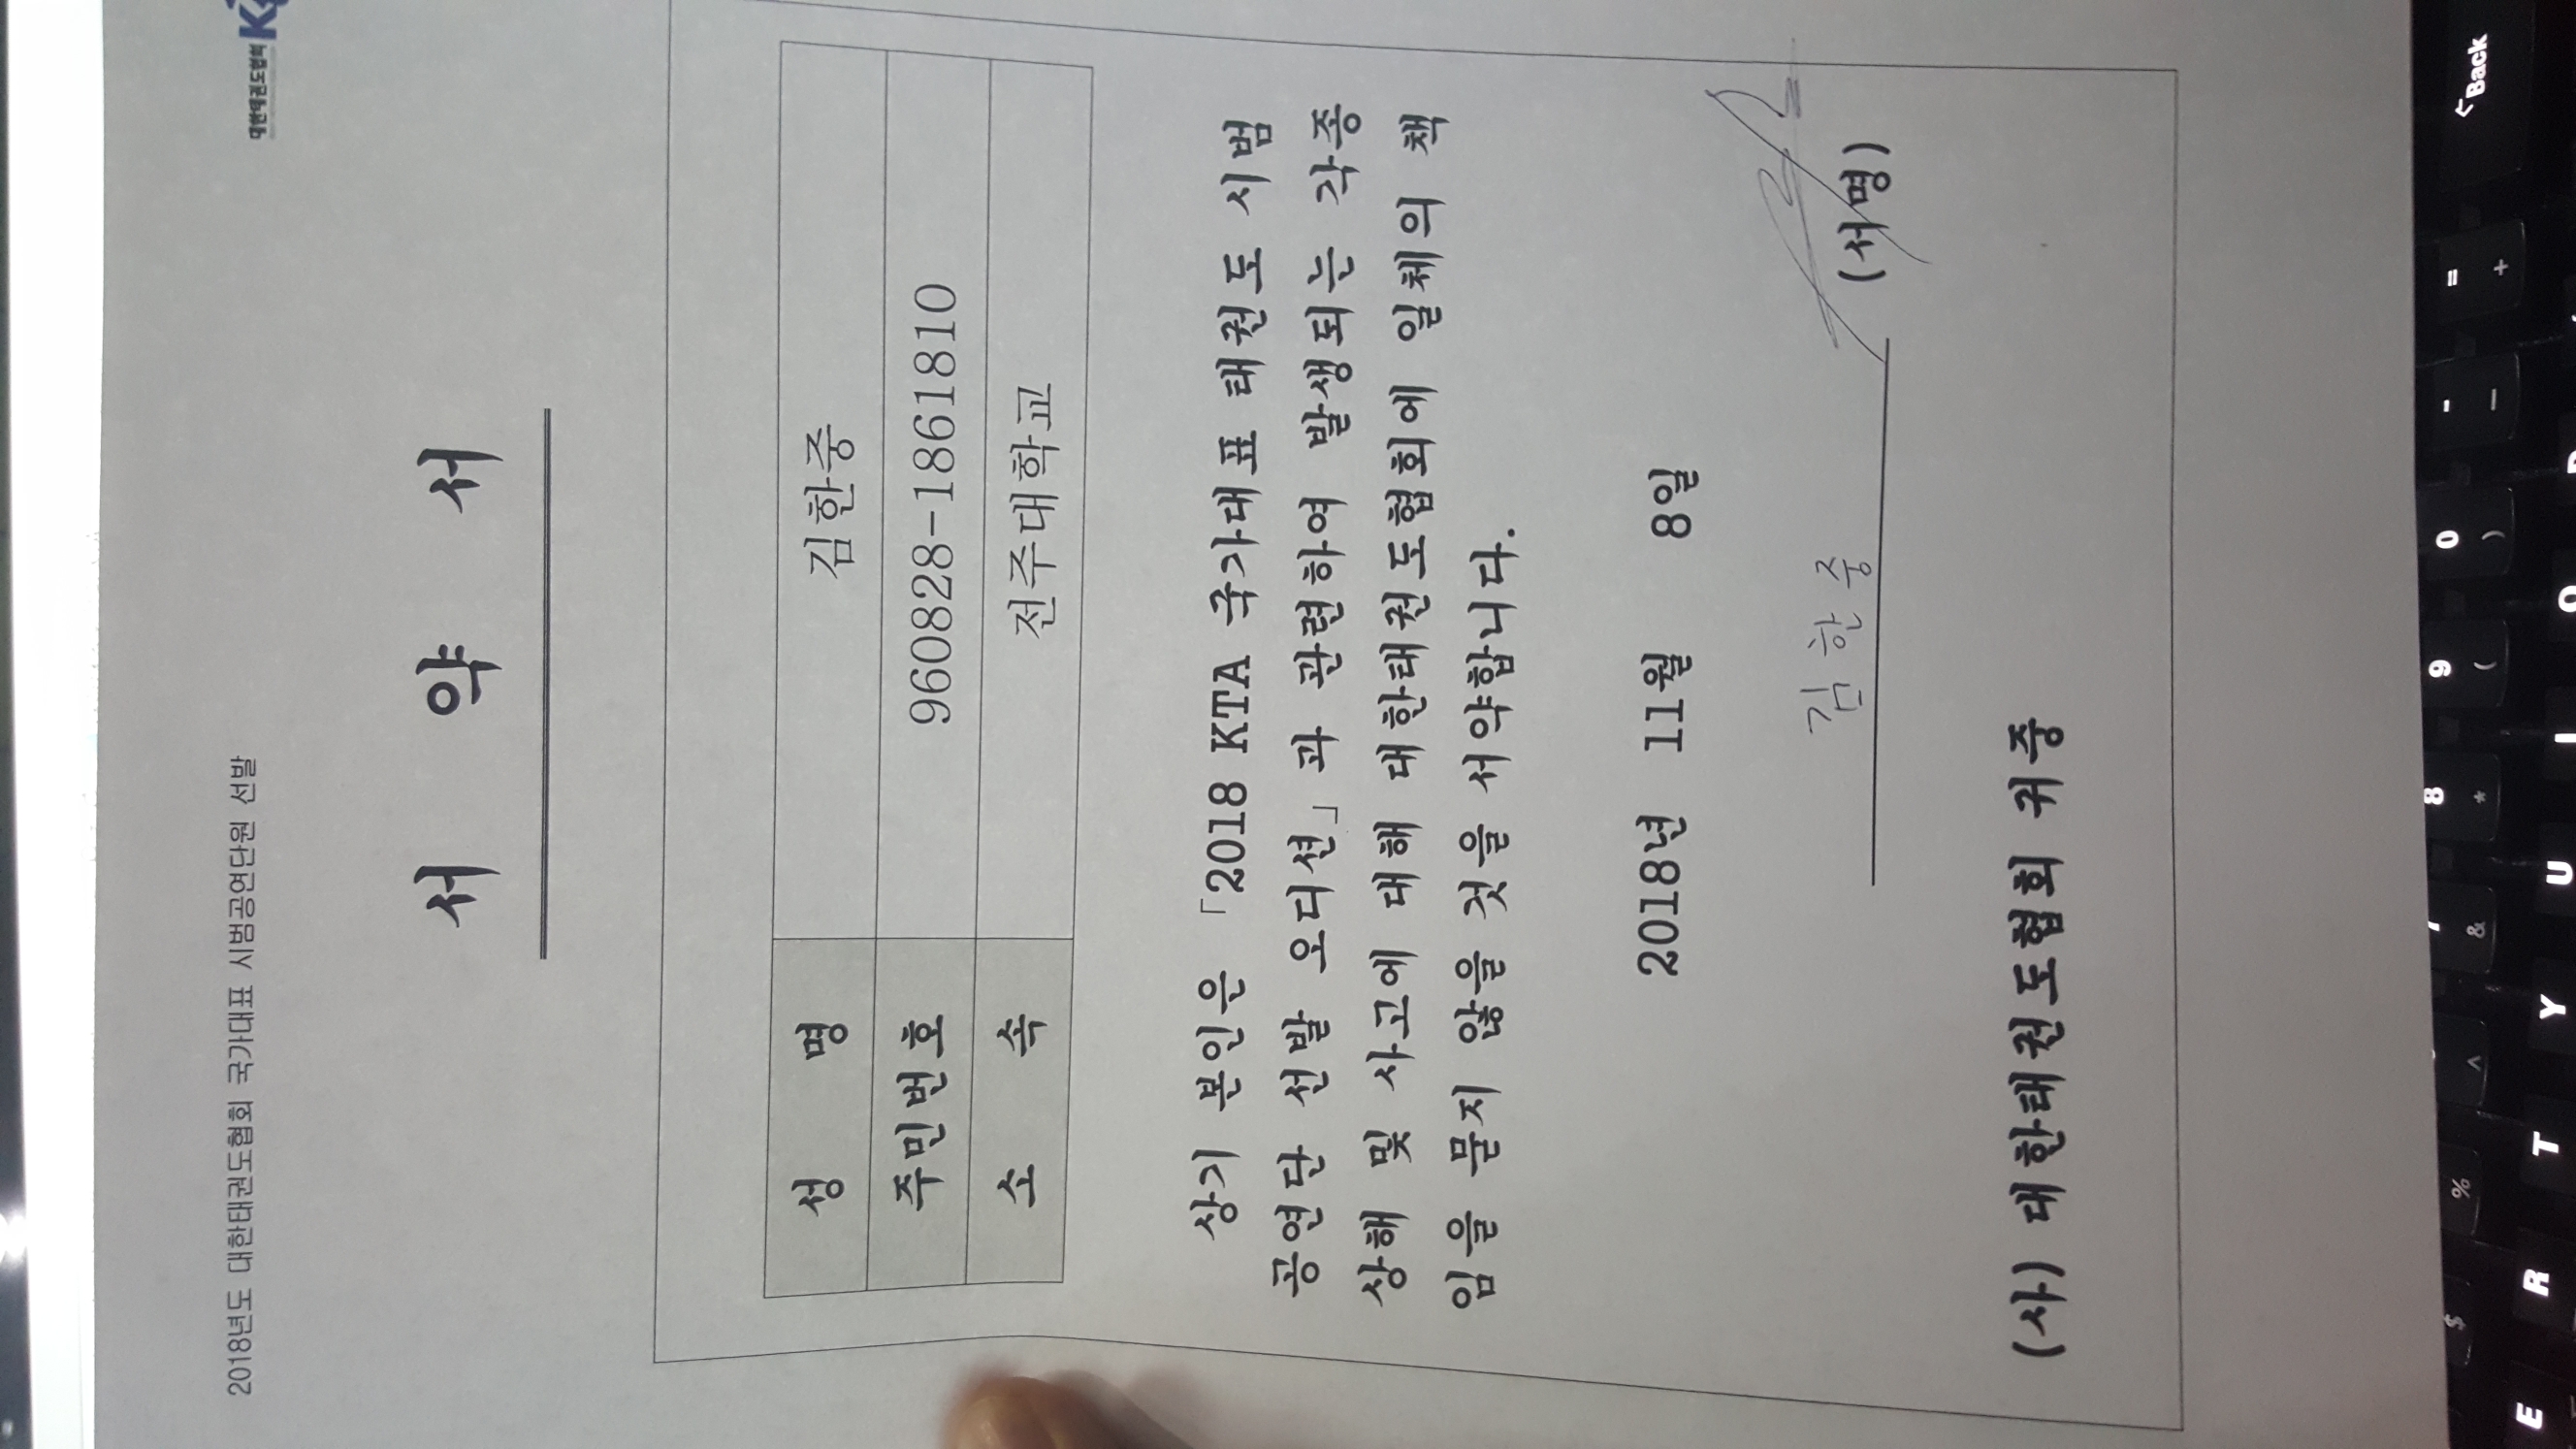 2018년도 대한태권도협회 국가대표 시범공연단원 선발
대한태권도협회
서 약 서
성 명 김한중
주민번호 960828-1861810
소 속 전주대학교
상기 본인은 「2018 KTA 국가대표 태권도 시범
공연단 선발 오디션」과 관련하여 발생되는 각종
상해 및 사고에 대해 대한태권도협회에 일체의 책
임을 물지 않을 것을 서약합니다.
2018년 11월 8일
김한중 (서명)
(사) 대한태권도협회 귀중
Back
= +
- _
0 )
9 (
8 *
&
^
%
$
U
Y
T
R
E